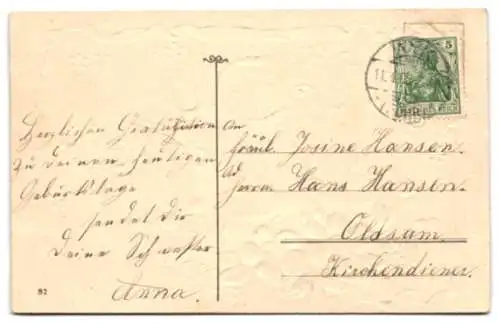 Herzlichen Gratulation
zu deinem heutigen
Geburtstage
sendet dir
deine Schwester
Anna.
An
Fräul. Josine Hansen.
Ad
Herrn Hans Hansen.
Oldsum.
Kirchendiener.
5
82